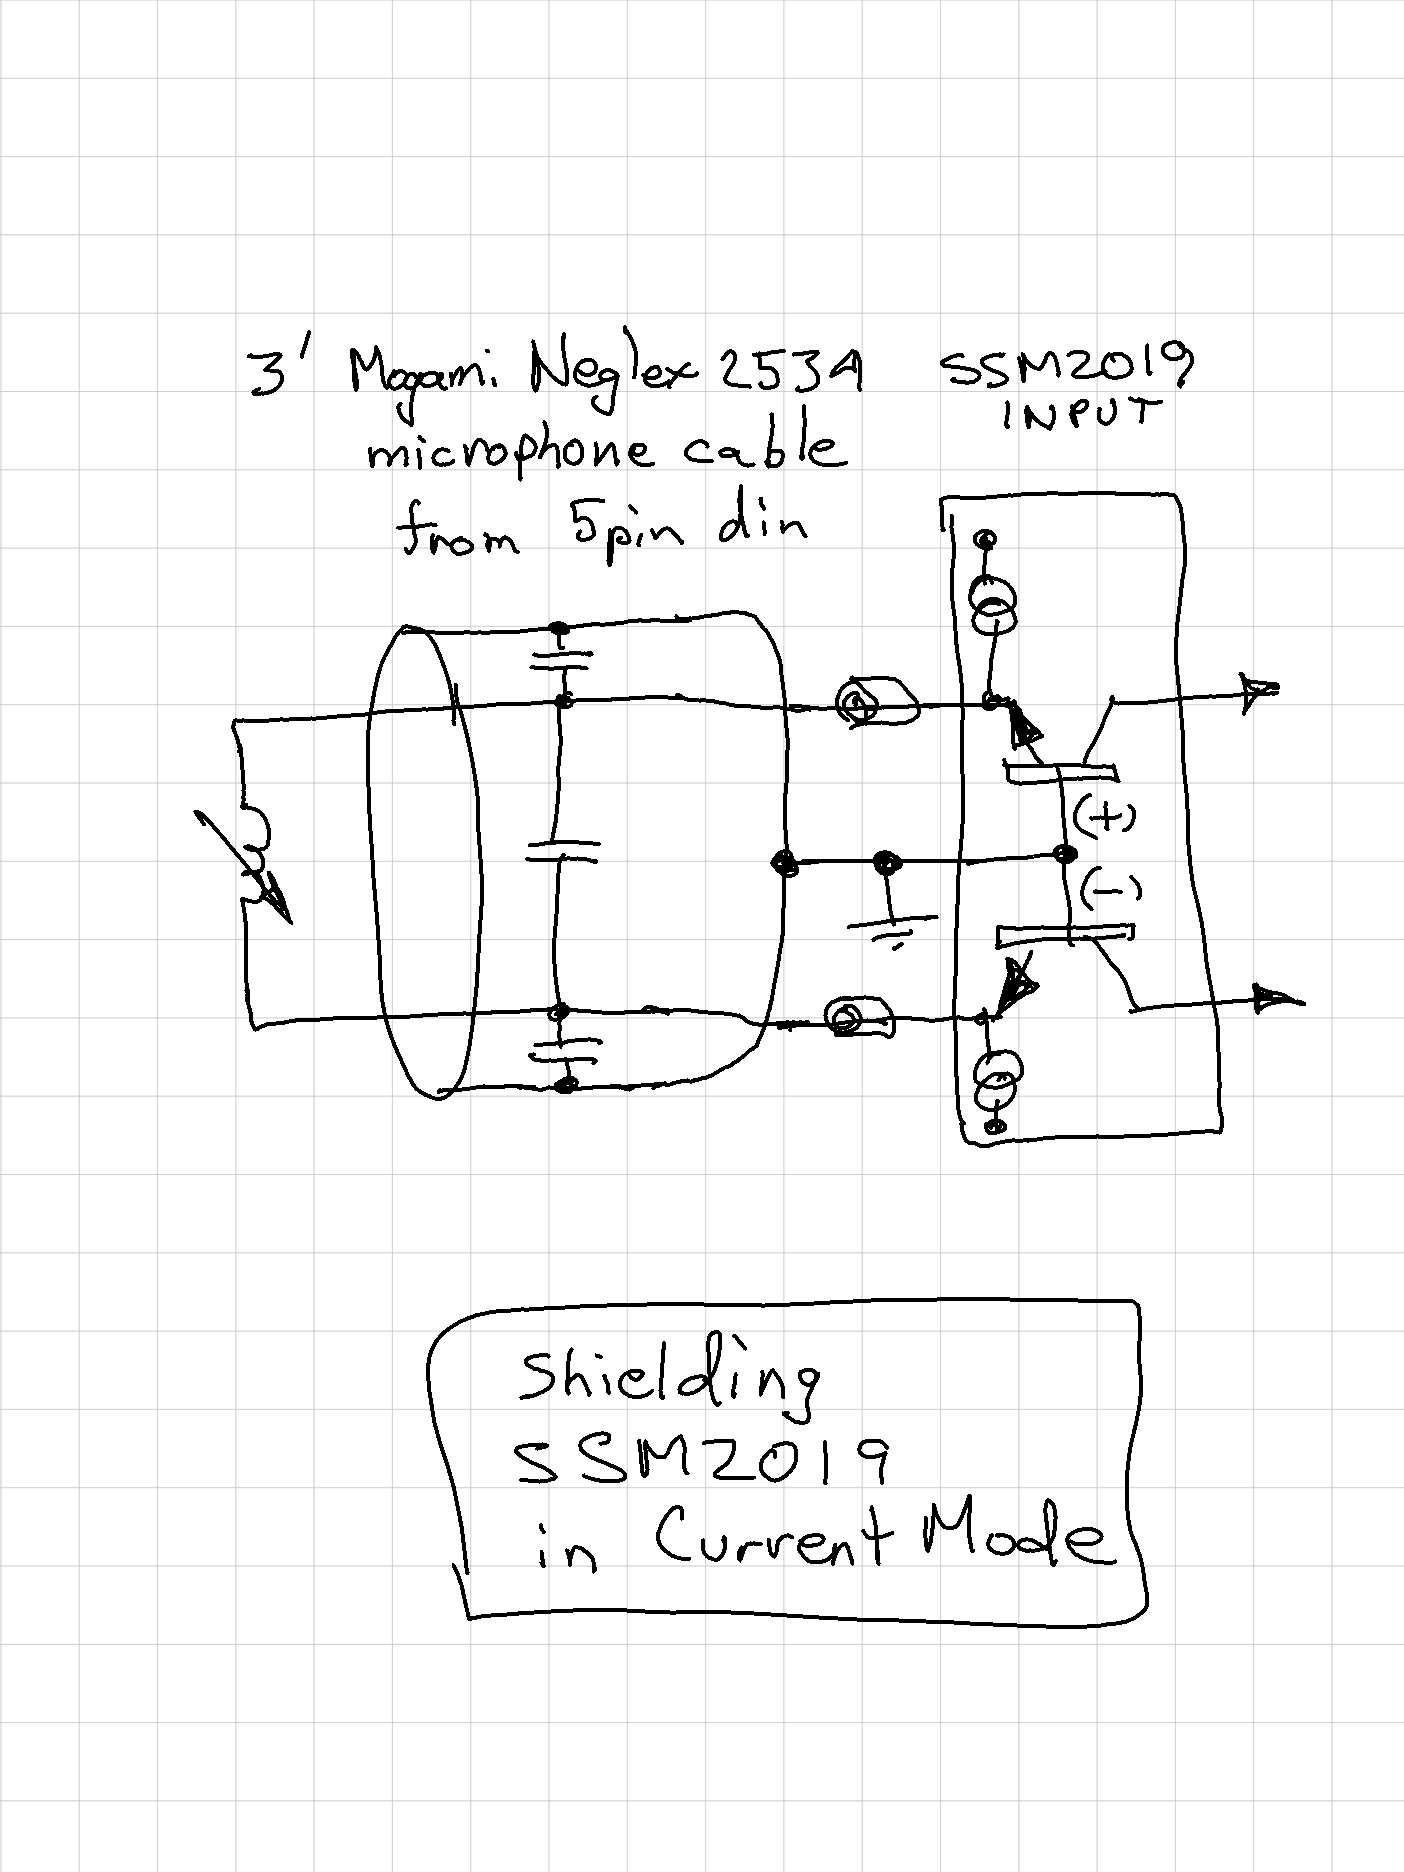 3' Mogami Neglex 2534
microphone cable
from 5pin din
SSM2019
INPUT
(+)
(-)
Shielding
SSM2019
in Current Mode